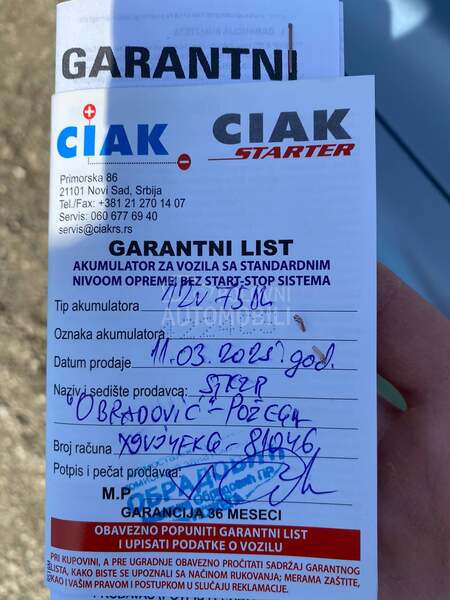 GARANTNI
CIAK
CIAK
STARTER
Primorska 86
21101 Novi Sad, Srbija
Tel./Fax: +381 21 270 14 07
Servis: 060 677 69 40
servis@ciakrs.rs
GARANTNI LIST
AKUMULATOR ZA VOZILA SA STANDARDNIM
NIVOOM OPREME; BEZ START-STOP SISTEMA
Tip akumulatora 12V 75Ah
Oznaka akumulatora
Datum prodaje 11.03.2025. god.
Naziv i sedište prodavca: SZTR
"OBRADOVIĆ"-POŽEGA
Broj računa X9VJ4FKG-81046
Potpis i pečat prodavca:
M.P.
OBRADOVIĆ
GARANCIJA 36 MESECI
OBAVEZNO POPUNITI GARANTNI LIST
I UPISATI PODATKE O VOZILU
PRI KUPOVINI, A PRE UGRADNJE OBAVEZNO PROČITATI SADRŽAJ GARANTNOG
LISTA, KAKO BISTE SE UPOZNALI SA NAČINOM RUKOVANJA; MERAMA ZAŠTITE,
KAO I VAŠIM PRAVOM I POSTUPKOM U SLUČAJU REKLAMACIJE.